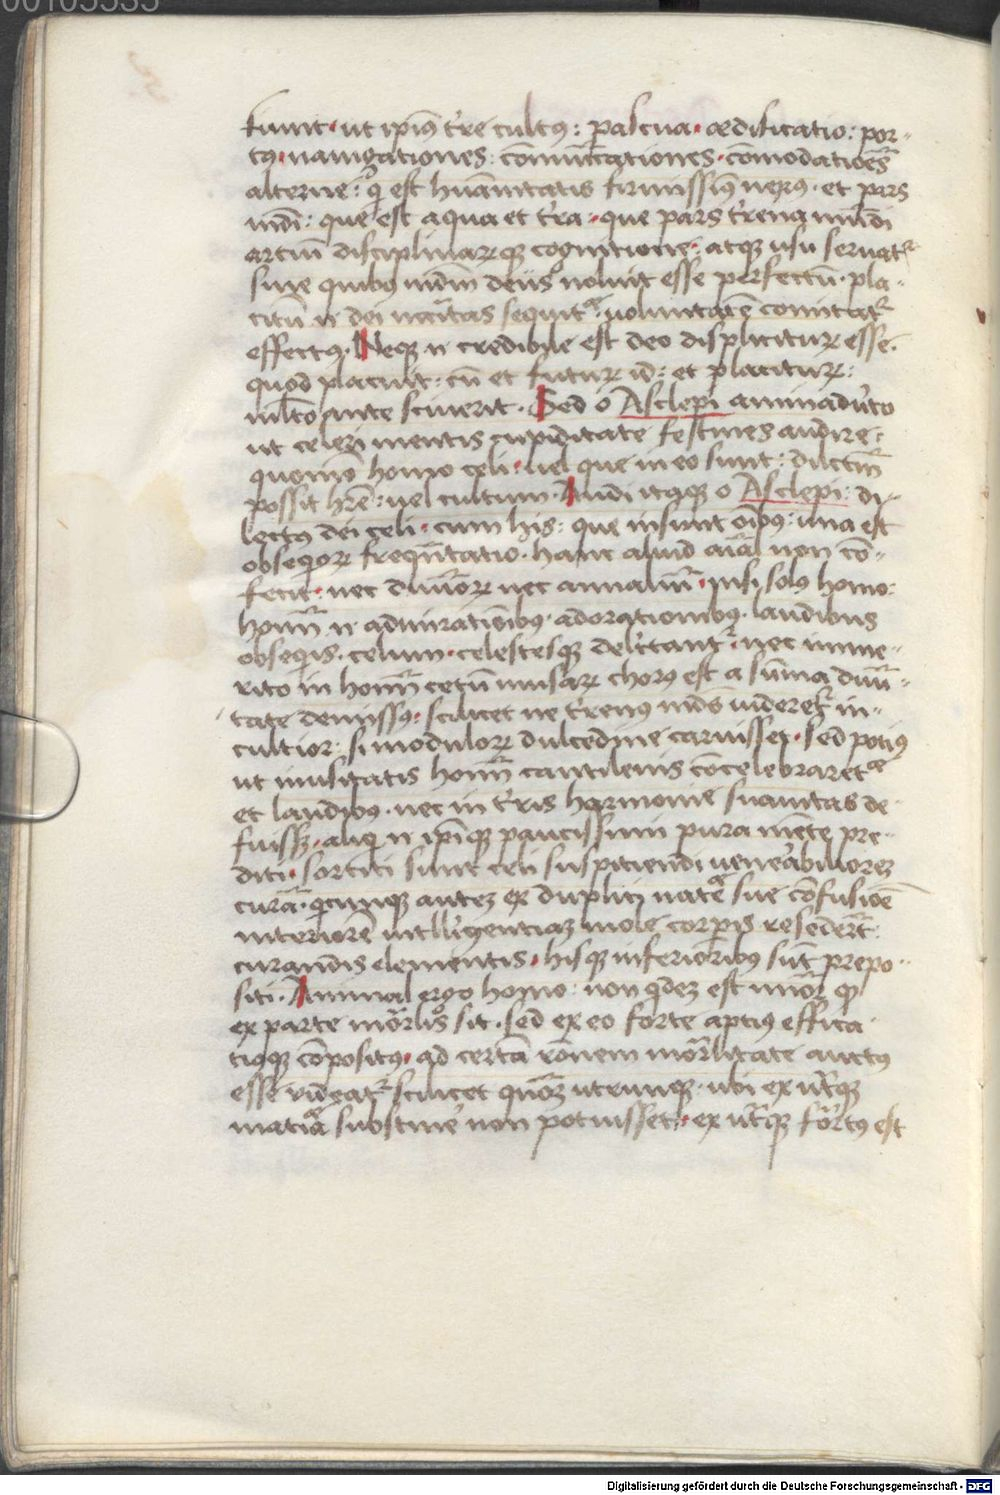 00105535
fiunt. ut ip̄ius t're cultus: pascua. ædificatio: por-
tus. nauigationes: cōmunicationes. cōmodatiōes
alterne: q̄ est hūanitatis firmissimus nexus. et pars
mūdi: que est aqua et t'ra. que pars t'rena mūdi
artiū disciplinarūq; cognitione: atq; usu seruat᷑
sine quibus mūdū deus noluit esse perfectū. pla-
citū n̄ dei necessitas sequit᷑: uoluntatē comitat᷑
effectus. Neq; n̄ credibile est deo displiciturꝝ esse.
quod placuit: cū et futurꝝ id: et placiturꝝ:
multo ante sciuerit. Sed o Asclepi animaduerto
ut celeri mentis cupiditate festines audire:
quomō homo celi. uel que in eo sunt: dilectum
possit hr̄e: uel cultum. Audi itaq; o Asclepi: di-
lectus dei celi. cum his: que insunt oībus: una est
obsequiorꝝ frequentatio. hanc aliud aīal non cō-
fecit. nec diuinorꝝ nec animaliū. nisi solus homo:
hominū n̄ admirationibus. adorationibus. laudibus
obsequiis. celum. celestesq; delectant᷑. nec imme-
rito in hominū cetū musarꝝ chorus est a summa diui-
tate demissus. scilicet ne t'renus mūdus uideret᷑ in-
cultior: si modulorꝝ dulcedine caruisset. sed potius
ut musicatis hominū cantilenis concelebraret᷑
et laudibus. nec in t'ris harmonie suauitas de-
fuisset. aliqui n̄ ipsiq; paucissimi pura mente pre-
diti. sortiti sunt celi suspiciendi uenerabilem
curā. quicunq; autez ex duplici nature sue cōfusiōe
interiorē intelligentiaz mole corporis resederunt:
curandis elementis. hisq; inferioribus sunt prepo-
siti. Animal ergo homo: non quidez est minor quod
ex parte mortalis sit. sed ex eo forte aptius effica-
tiusq; cōpositus. ad certā rōnem mortalitate auctus
esse uideat᷑ scilicet quoniaz utrunq;. nisi ex utraq;
materia sustinere non potuisset. ex utraq; formatus est
Digitalisierung gefördert durch die Deutsche Forschungsgemeinschaft - DFG